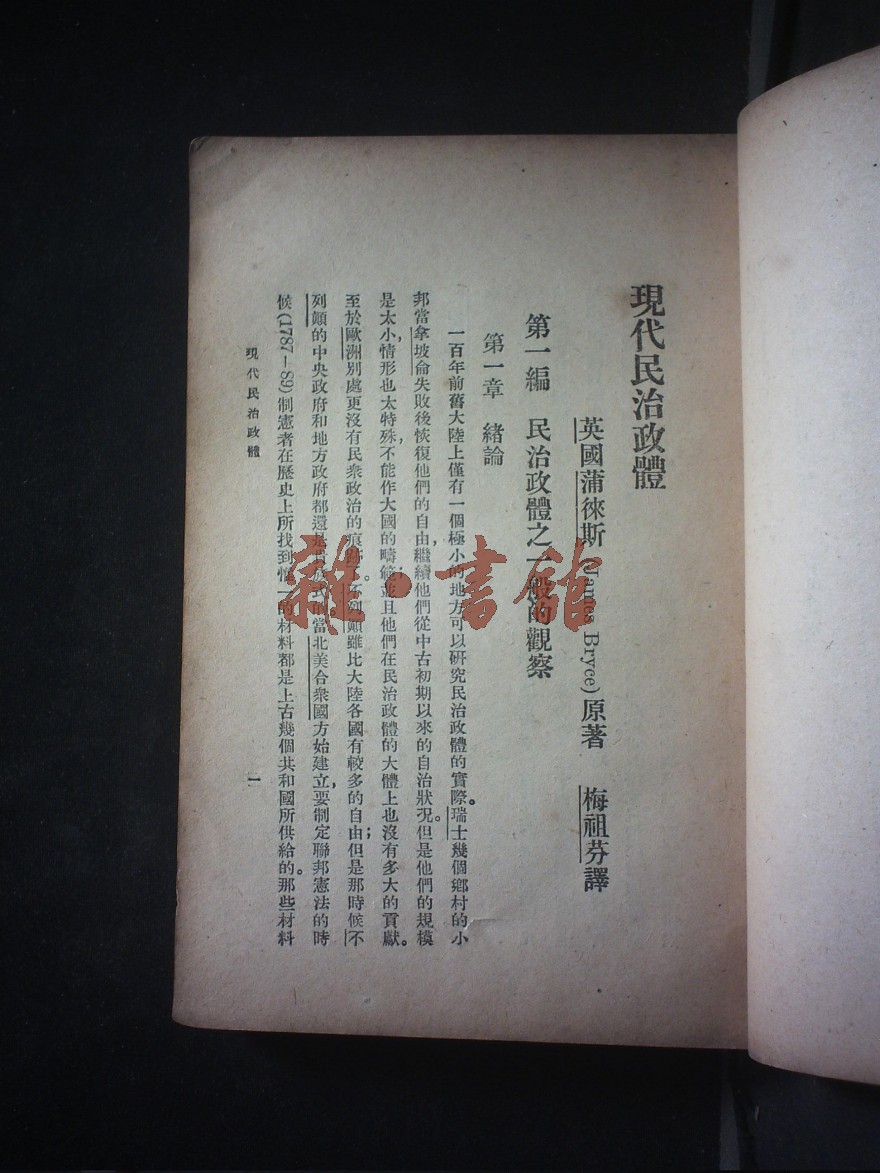 現代民治政體
英國蒲徠斯(James Bryce)原著　梅祖芬譯
第一編　民治政體之一般的觀察
第一章　緒論
一百年前舊大陸上僅有一個極小的地方可以研究民治政體的實際。瑞士幾個鄉村的小
邦當拿坡侖失敗後恢復他們的自由，繼續他們從中古初期以來的自治狀況。但是他們的規模
是太小，情形也太特殊，不能作大國的疇範；並且他們在民治政體的大體上也沒有多大的貢獻。
至於歐洲別處更沒有民衆政治的痕跡了。不列顛雖比大陸各國有較多的自由；但是那時候不
列顛的中央政府和地方政府都還是式的。當北美合衆國方始建立，要制定聯邦憲法的時
候(1787—89)制憲者在歷史上所找到惟一的材料都是上古幾個共和國所供給的。那些材料
現代民治政體
一
雜·書館